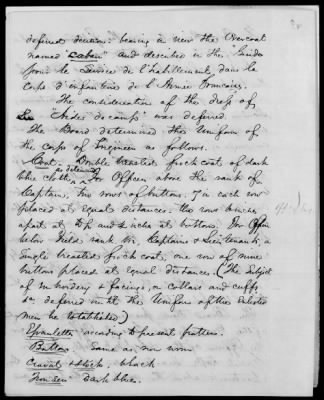 defined section: bearing in view the Overcoat
named "caban" and described in the "Guide
pour le Service de l'habillement, dans les
corps d'infanterie de l'Armee Francaise.
The consideration of the dress of
"Aides de camps" was deferred.
The Board determined the Uniform of
the corps of Engineers as follows.
Coat. Double breasted frock coat of dark
blue cloth, as determined For Officers above the rank of
Captain, two rows of buttons, 7 in each row
placed at equal distances. the rows inches
apart at top and 4 inches at bottom. For Officers
below Field rank viz, Captains & Lieutenants, a
single breasted frock coat, one row of nine
buttons placed at equal distances. (The Subject
of embroidery & facings, on collars and cuffs,
&c deferred until the Uniform of the Enlisted
men be established)
Epaulette according to present pattern.
Button same as now worn
Cravat or stock, black
Trousers dark blue.